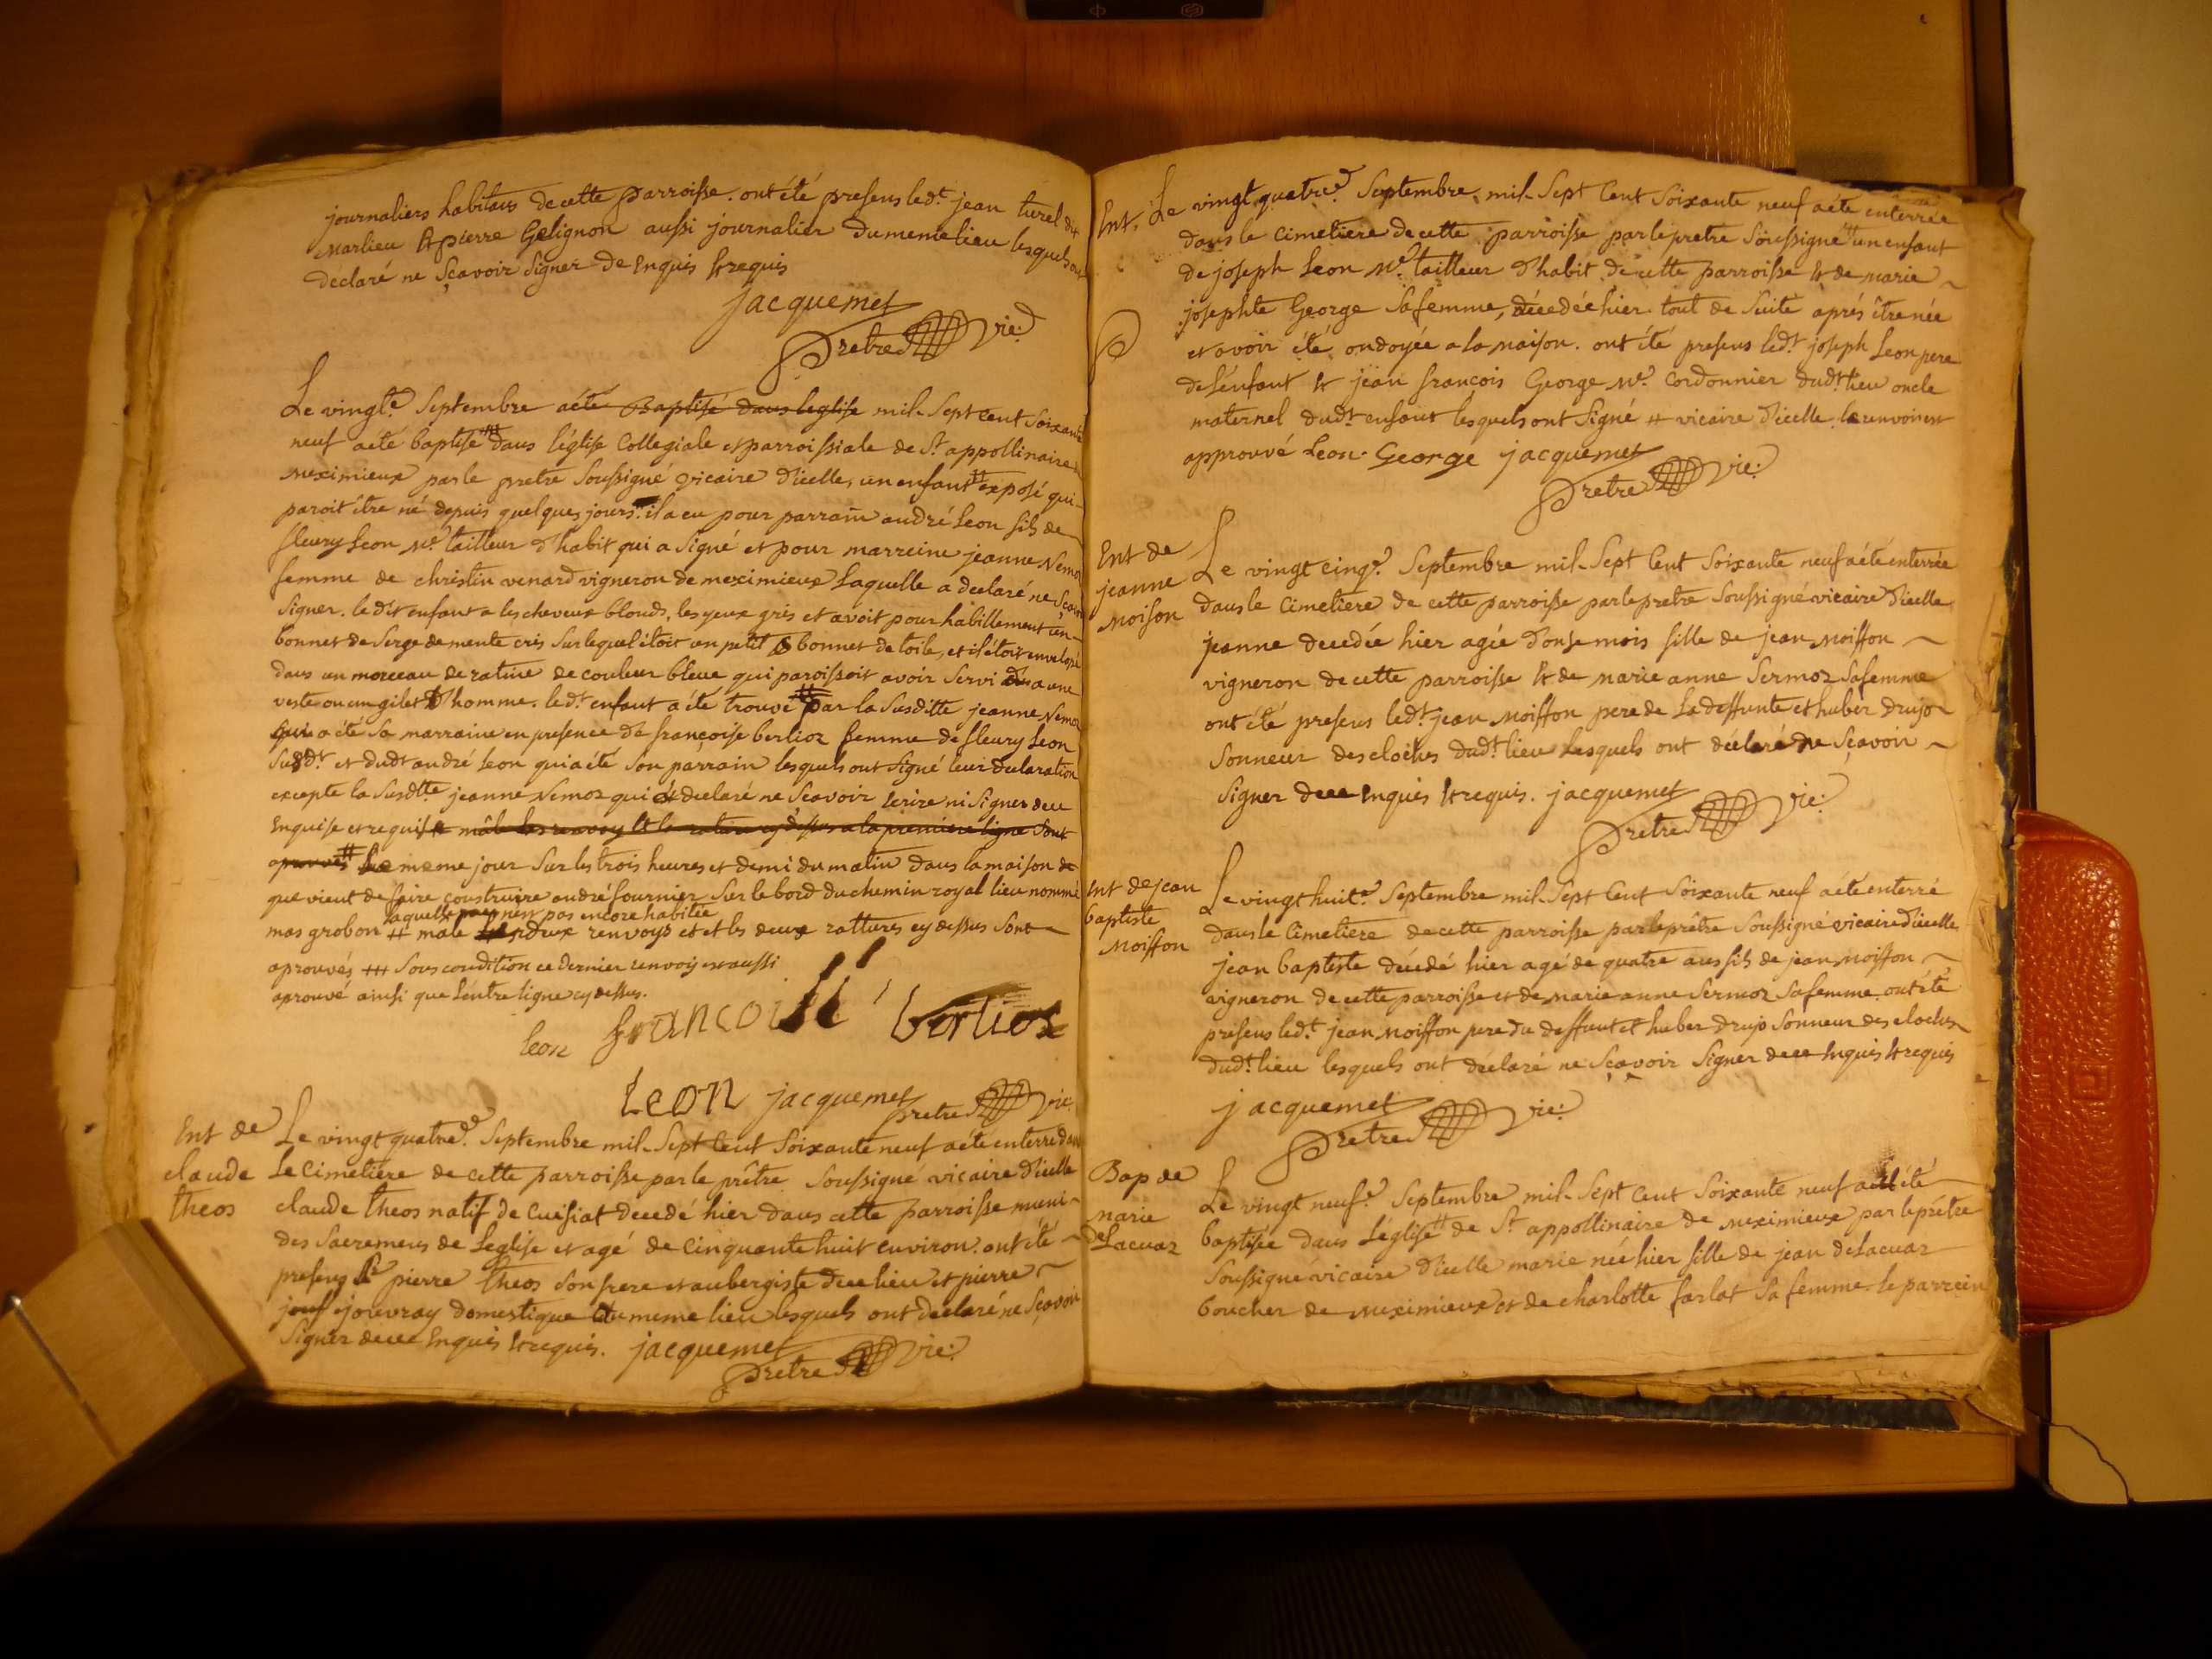 journaliers habitans de cette parroisse. ont été presens led.t jean turel dit
marlieu et pierre Gelignon aussi journalier du meme lieu lesquels ont
declaré ne sçavoir signer de enquis et requis
jacquemet
pretre vic:
Le vingt.e Septembre aété Baptisé dans leglise mil-Sept Cent Soixante
neuf aeté baptisé +++ dans l'église Collegiale et parroissiale de S.t appollinaire
meximieux par le pretre Soussigné vicaire d'icelle, un enfant # exposé qui
paroit être né depuis quelques jours. il a eu pour parrain andré Leon fils de
fleury Leon M.e tailleur d'habit qui a signé et pour marreine jeanne Nemoz
femme de christin venard vigneron de meximieux Laquelle a declaré ne sçavoir
signer. le dit enfant a les cheveux blonds, les yeux gris et avoit pour habillement un
bonnet de Serge de mente cris Sur lequel étoit un petit bonnet de toile, et il étoit envelopé
dans un morceau de ratine de couleur bleue qui paroissoit avoir Servi a une
veste ou un gilet D'homme. led.t enfant a été trouvé # par la Susditte jeanne Nemoz
qui a été Sa marraine en presence dé françoise berlioz femme de fleury Leon
Susd.t et dud.t andré Leon qui a été Son parrain lesquels ont signé leur declaration
excepte la Susd.tte jeanne Nemoz qui a declaré ne Sçavoir ecrire ni Signer de ce
Enquise et requise # mâle les renvoy et la rature cy dessus a la premiere ligne Sont
aprouvés # Le meme jour Sur les trois heures et demi du matin dans la maison de
que vient de faire construire andré fournier Sur le bord du chemin royal lieu nommé
laquelle n'est pas encore habitée
mas grobon # mâle deux renvoys et et les deux rattures cy dessus Sont
aprouvés +++ Sous condition ce dernier renvoy est aussi
aprouvé ainsi que l'entre ligne cy dessus.
leon francoise berlioz
Leon jacquemet
pretre vic:
Ent de
claude
theos
Le vingt quatre.e Septembre mil-Sept Cent Soixante neuf aété enterré dans
Le Cimetiere de cette parroisse par le prêtre Soussigné vicaire d'icelle
claude theos natif de Cuisiat decedé hier dans cette parroisse muni
des Sacremens de Leglise et agé de Cinquante huit environ. ont été
presens pierre theos Son frere et aubergiste de ce lieu et pierre
jouf-jouvray domestique du meme lieu lesquels ont declaré ne Sçavoir
Signer de ce Enquis et requis. jacquemet
pretre vic:
Ent.
Le vingt quatre.e Septembre mil-Sept Cent Soixante neuf aété enterrée
dans le cimetiere de cette parroisse par le pretre Soussigné # un enfant
de joseph Leon M.e tailleur d'habit de cétte parroisse et de marie
josephte George Sa femme, décedée hier tout de Suite aprés être née
et avoir été ondoyée a la maison. ont été presens led.t joseph Leon pere
de l'enfant et jean françois George M.e Cordonnier dud.t lieu oncle
maternel dud.t enfant lesquels ont Signé # vicaire d'icelle. le renvoi est
approuvé Leon. George jacquemet
pretre vic:
Ent de
jeanne
Moison
Le vingt cinq.e Septembre mil-Sept Cent Soixante neuf aété enterrée
dans le Cimetiere de cette parroisse par le pretre Soussigné vicaire d'icelle
jeanne decedée hier agée d'onse mois fille de jean Moiffon
vigneron de cette parroisse et de marie anne Sermoz Sa femme
ont été presens led.t jean Moiffon pere de La deffunte et huber drujo
Sonneur des cloches dud.t lieu Lesquels ont déclaré ne Sçavoir
Signer de ce Enquis et requis. jacquemet
pretre vic:
Ent de jean
baptiste
Moiffon
Le vingt huit.e Septembre mil-Sept Cent Soixante neuf aété enterré
dans le Cimetiere de cette parroisse par le prêtre Soussigné vicaire d'icelle
jean baptiste décedé hier agé de quatre ans fils de jean Moiffon
vigneron de cette parroisse et de marie anne Sermoz Sa femme. ont été
presens led.t jean Moiffon pere du deffunt et huber drujo Sonneur des cloches
dud.t lieu lesquels ont déclaré ne Sçavoir Signer de ce Enquis et requis
jacquemet
pretre vic:
Bap de
marie
deLacuaz
Le vingt neuf.e Septembre mil-Sept Cent Soixante neuf a été
baptisée dans L'église # de S.t appollinaire de meximieux par le prétre
Soussigné vicaire d'icelle marie née hier fille de jean deLacuaz
boucher de meximieux et de charlotte farlat Sa femme. le parrein